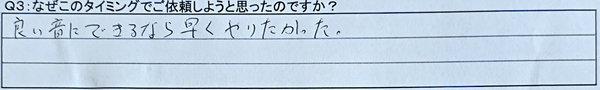 Q3：なぜこのタイミングでご依頼しようと思ったのですか？
良い音にできるなら早くやりたかった。